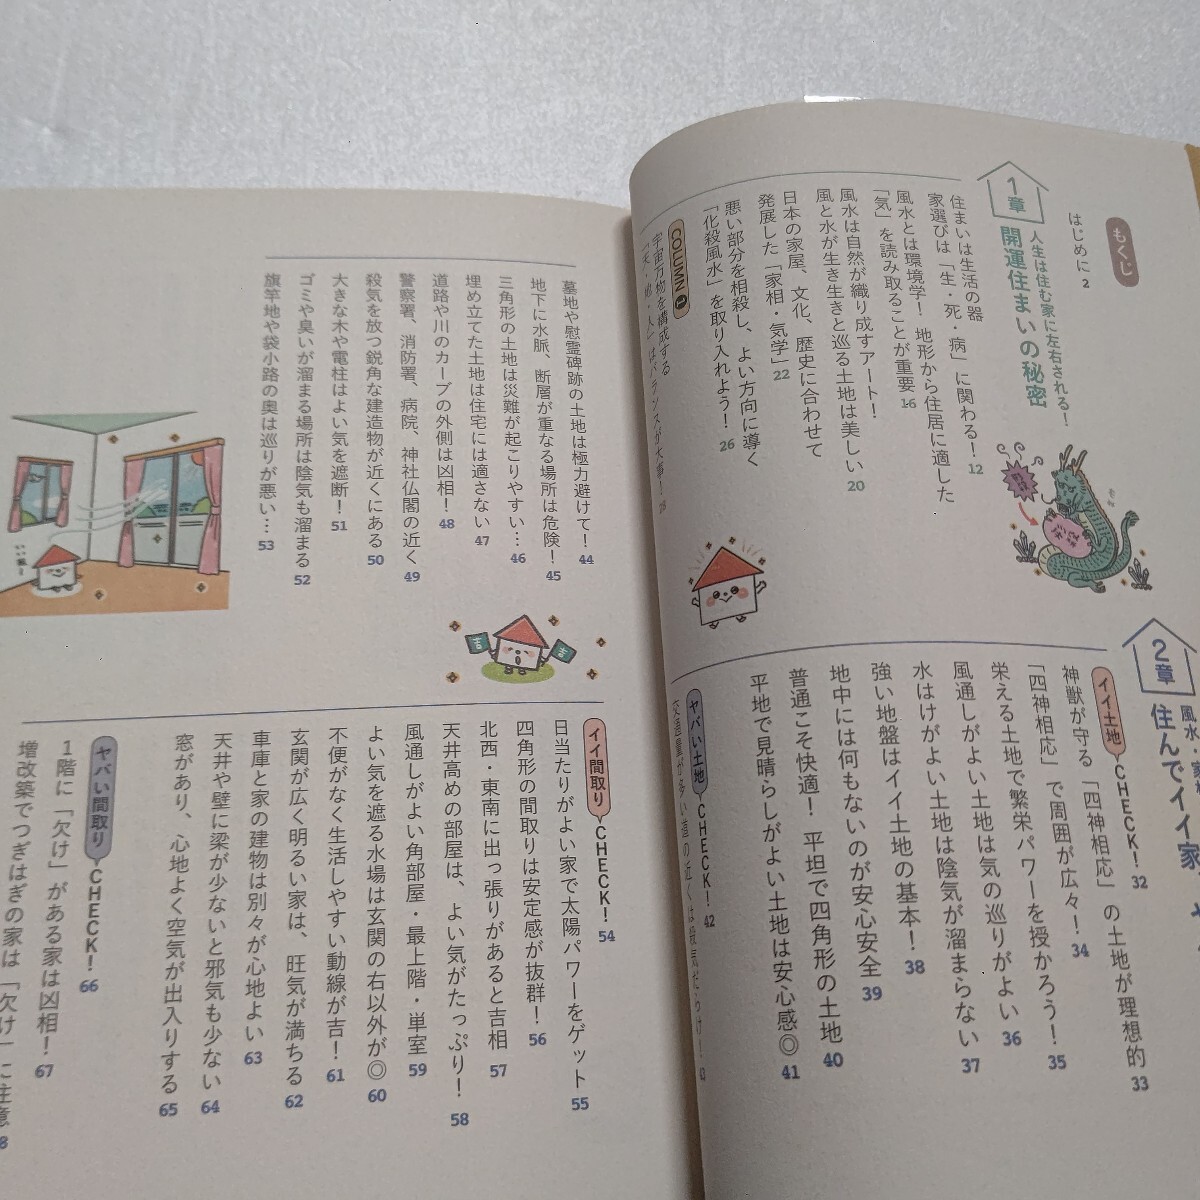 もくじ
はじめに 2
1章
人生は住む家に左右される!
開運住まいの秘密
住まいは生活の器
家選びは「生・死・病」に関わる! 12
風水とは環境学! 地形から住居に適した
「気」を読み取ることが重要 16
風水は自然が織り成すアート!
風と水が生き生きと巡る土地は美しい 20
日本の家屋、文化、歴史に合わせて
発展した「家相・気学」 22
悪い部分を相殺し、よい方向に導く
「化殺風水」を取り入れよう! 26
COLUMN 1
宇宙万物を構成する
「天・地・人」はバランスが大事! 28
2章
風水・家相
住んでイイ家
イイ土地 CHECK! 32
神獣が守る「四神相応」の土地が理想的 33
「四神相応」で周囲が広々! 34
栄える土地で繁栄パワーを授かろう! 35
風通しがよい土地は気の巡りがよい 36
水はけがよい土地は陰気が溜まらない 37
強い地盤はイイ土地の基本! 38
地中には何もないのが安心安全 39
普通こそ快適! 平坦で四角形の土地 40
平地で見晴らしがよい土地は安心感◎ 41
ヤバい土地 CHECK! 42
交通量が多い道の近くは殺気だらけ! 43
墓地や慰霊碑跡の土地は極力避けて! 44
地下に水脈、断層が重なる場所は危険! 45
三角形の土地は災難が起こりやすい… 46
埋め立てた土地は住宅には適さない 47
道路や川のカーブの外側は凶相! 48
警察署、消防署、病院、神社仏閣の近く 49
殺気を放つ鋭角な建造物が近くにある 50
大きな木や電柱はよい気を遮断! 51
ゴミや臭いが溜まる場所は陰気も溜まる 52
旗竿地や袋小路の奥は巡りが悪い… 53
いい風〜
吉
吉
イイ間取り CHECK! 54
日当たりがよい家で太陽パワーをゲット 55
四角形の間取りは安定感が抜群! 56
北西・東南に出っ張りがあると吉相 57
天井高めの部屋は、よい気がたっぷり! 58
風通しがよい角部屋・最上階・単室 59
よい気を遮る水場は玄関の右以外が◎ 60
不便がなく生活しやすい動線が吉! 61
玄関が広く明るい家は、旺気が満ちる 62
車庫と家の建物は別々が心地よい 63
天井や壁に梁が少ないと邪気も少ない 64
窓があり、心地よく空気が出入りする 65
ヤバい間取り CHECK! 66
1階に「欠け」がある家は凶相! 67
増改築でつぎはぎの家は「欠け」に注意